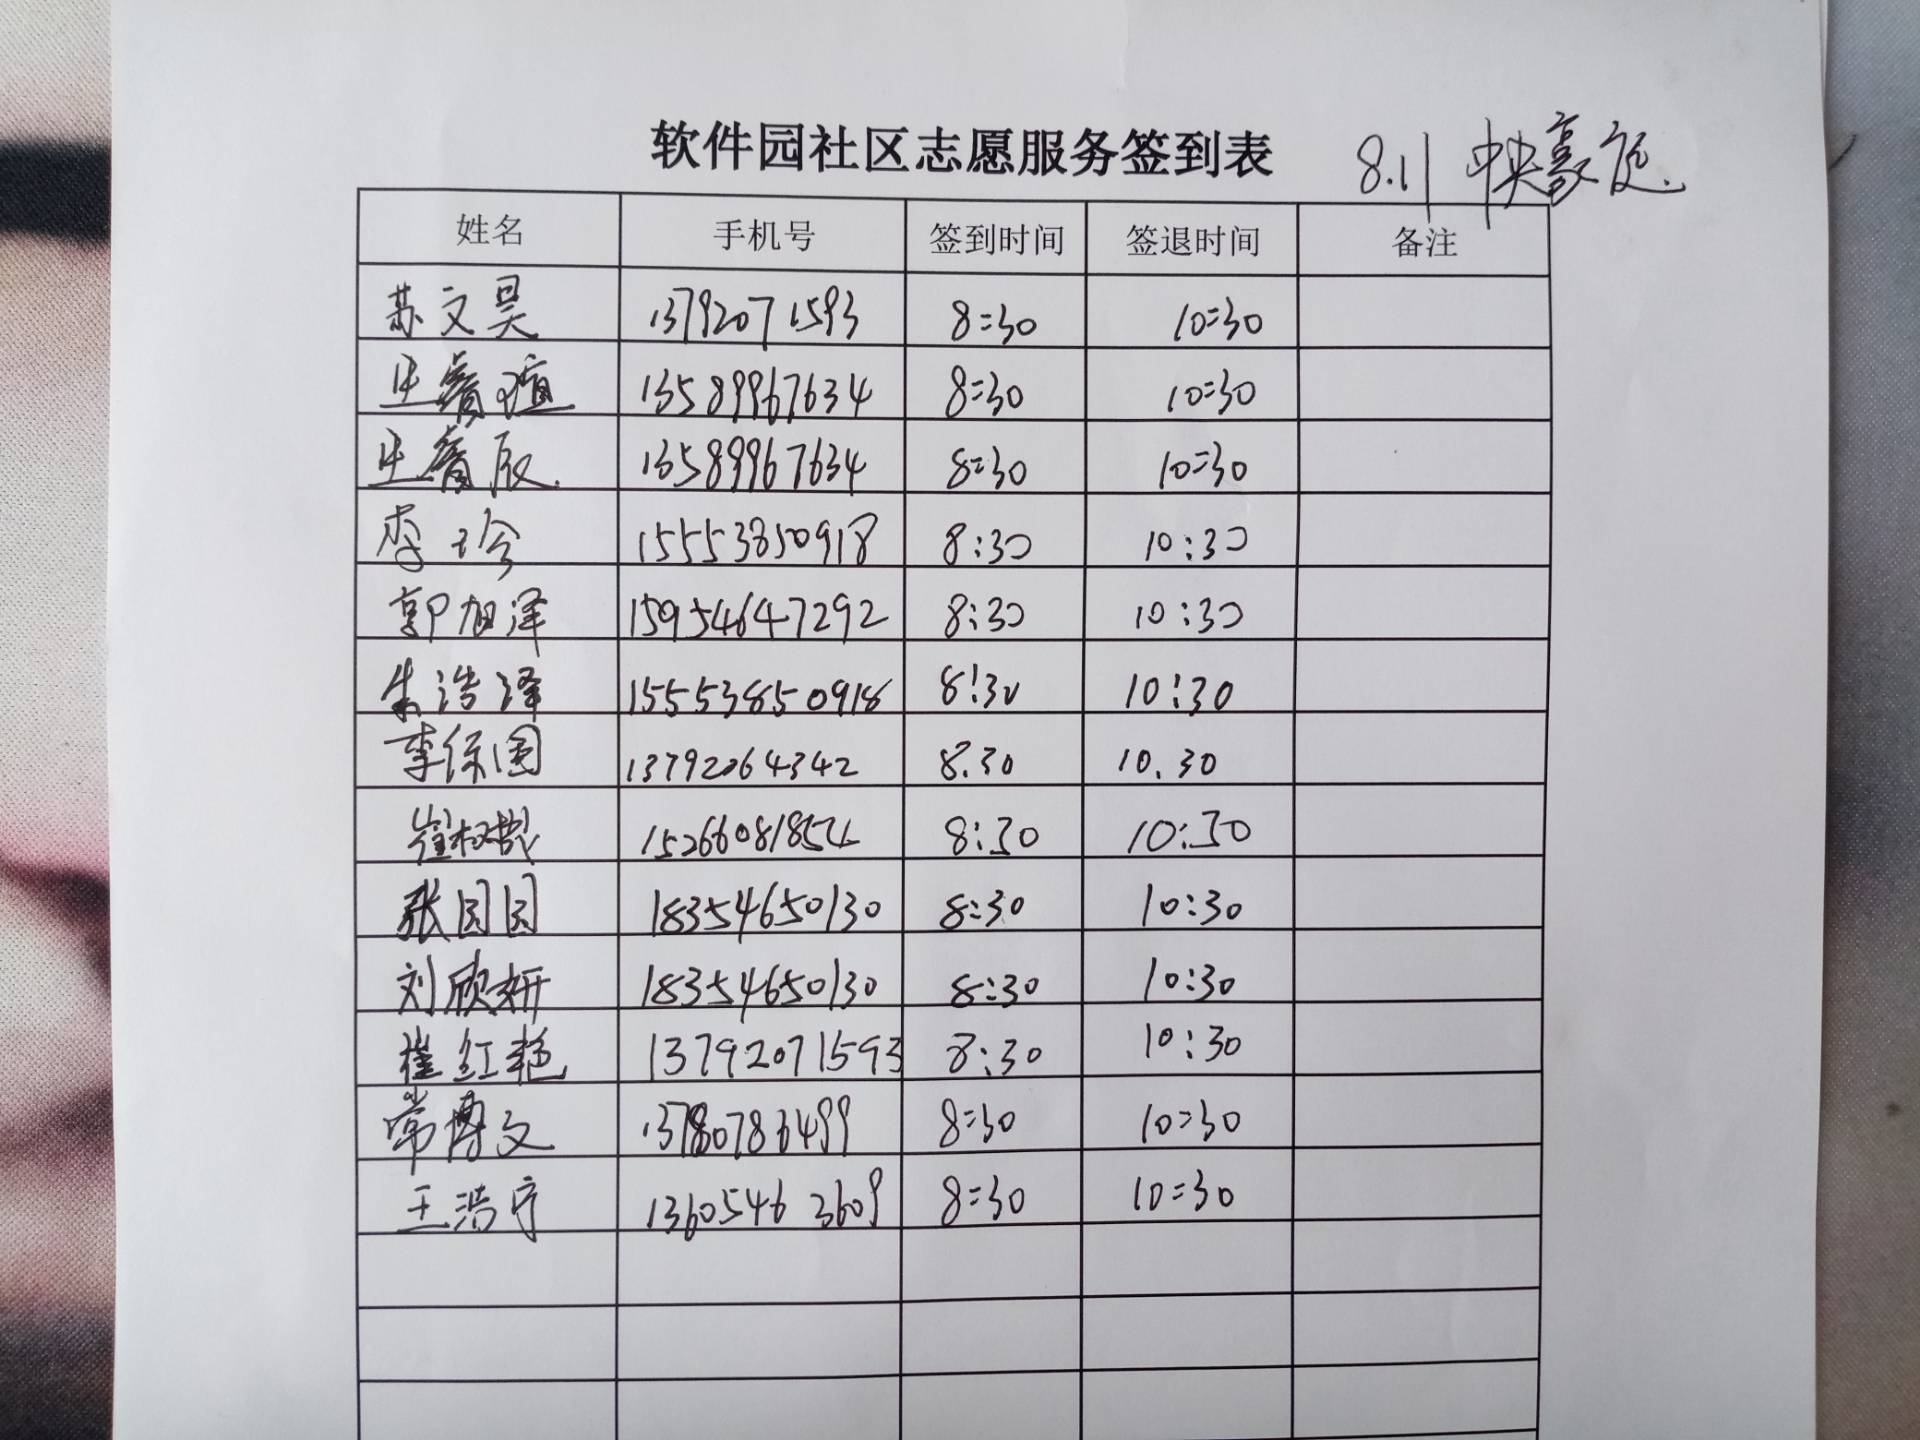 软件园社区志愿服务签到表 8.11 中央豪庭
姓名 手机号 签到时间 签退时间 备注
苏文昊 13792071593 8:30 10:30
13589967634 8:30 10:30
13589967634 8:30 10:30
李珍 15553850918 8:30 10:30
郭旭泽 15954647292 8:30 10:30
朱浩泽 15553850918 8:30 10:30
李保国 13792064342 8.30 10.30
崔 8:30 10:30
张园园 18354650130 8:30 10:30
刘欣妍 18354650130 8:30 10:30
崔红艳 13792071593 8:30 10:30
常博文 8:30 10:30
王浩宇 13605463609 8:30 10:30